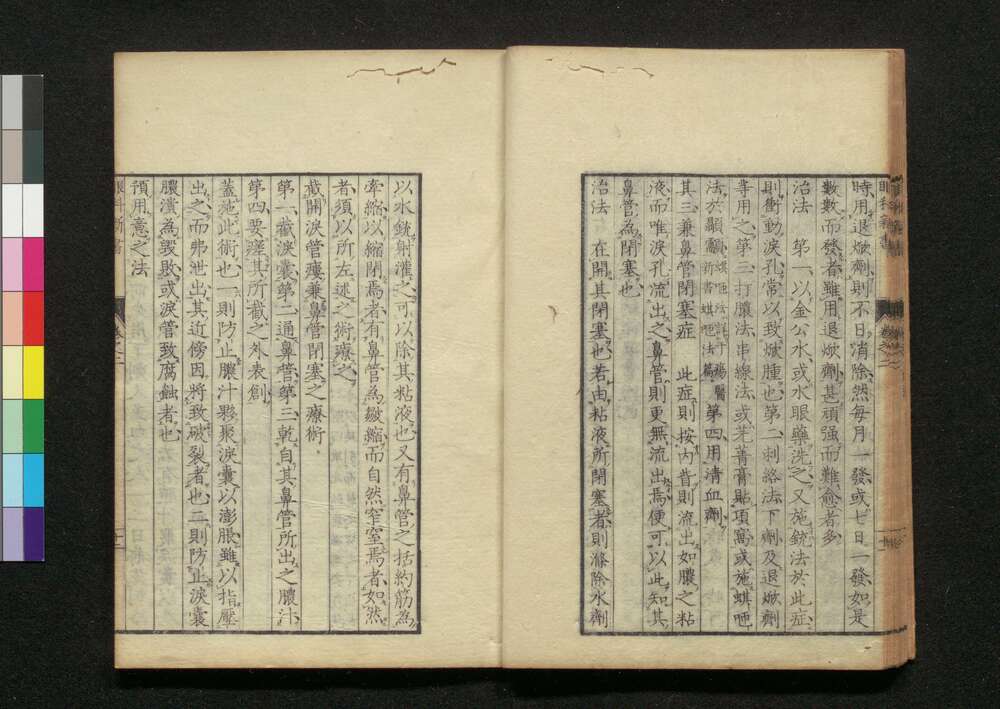 時用退焮劑則不日消除然每月一發或七日一發如是
數數而發者雖用退焮劑甚頑强而難愈者多
治法　第一以金公水或水眼藥洗之又施銃法於此症
則衝動淚孔常以致焮腫也第二刺絡法下劑及退焮劑
等用之第三打膿法串線法或芫菁膏貼項窩或施蜞㖠
法於顳顬　第四用清血劑
其三兼鼻管閉塞症　此症則按內眥則流出如膿之粘
液而唯淚孔流出之鼻管則更無流出焉便可以此知其
鼻管為閉塞也
治法　在開其閉塞也若由粘液所閉塞者則滌除水劑
以水銃射灌之可以除其粘液也又有鼻管之括約筋為
牽縮以縮閉焉者有鼻管為皺縮而自然窄窒焉者如然
者須以所左述之術療之
截開淚管瘻兼鼻管閉塞之療術
第一截淚囊第二通鼻管第三乾自其鼻管所出之膿汁
第四要瘞其所截之外表創
蓋施此術也一則防止膿汁夥聚淚囊以澎脹雖以指壓
出之而弗泄出其近傍因將致破裂者也二則防止淚囊
膿潰為毀敗或淚管致腐蝕者也
預用意之法
眼科新書